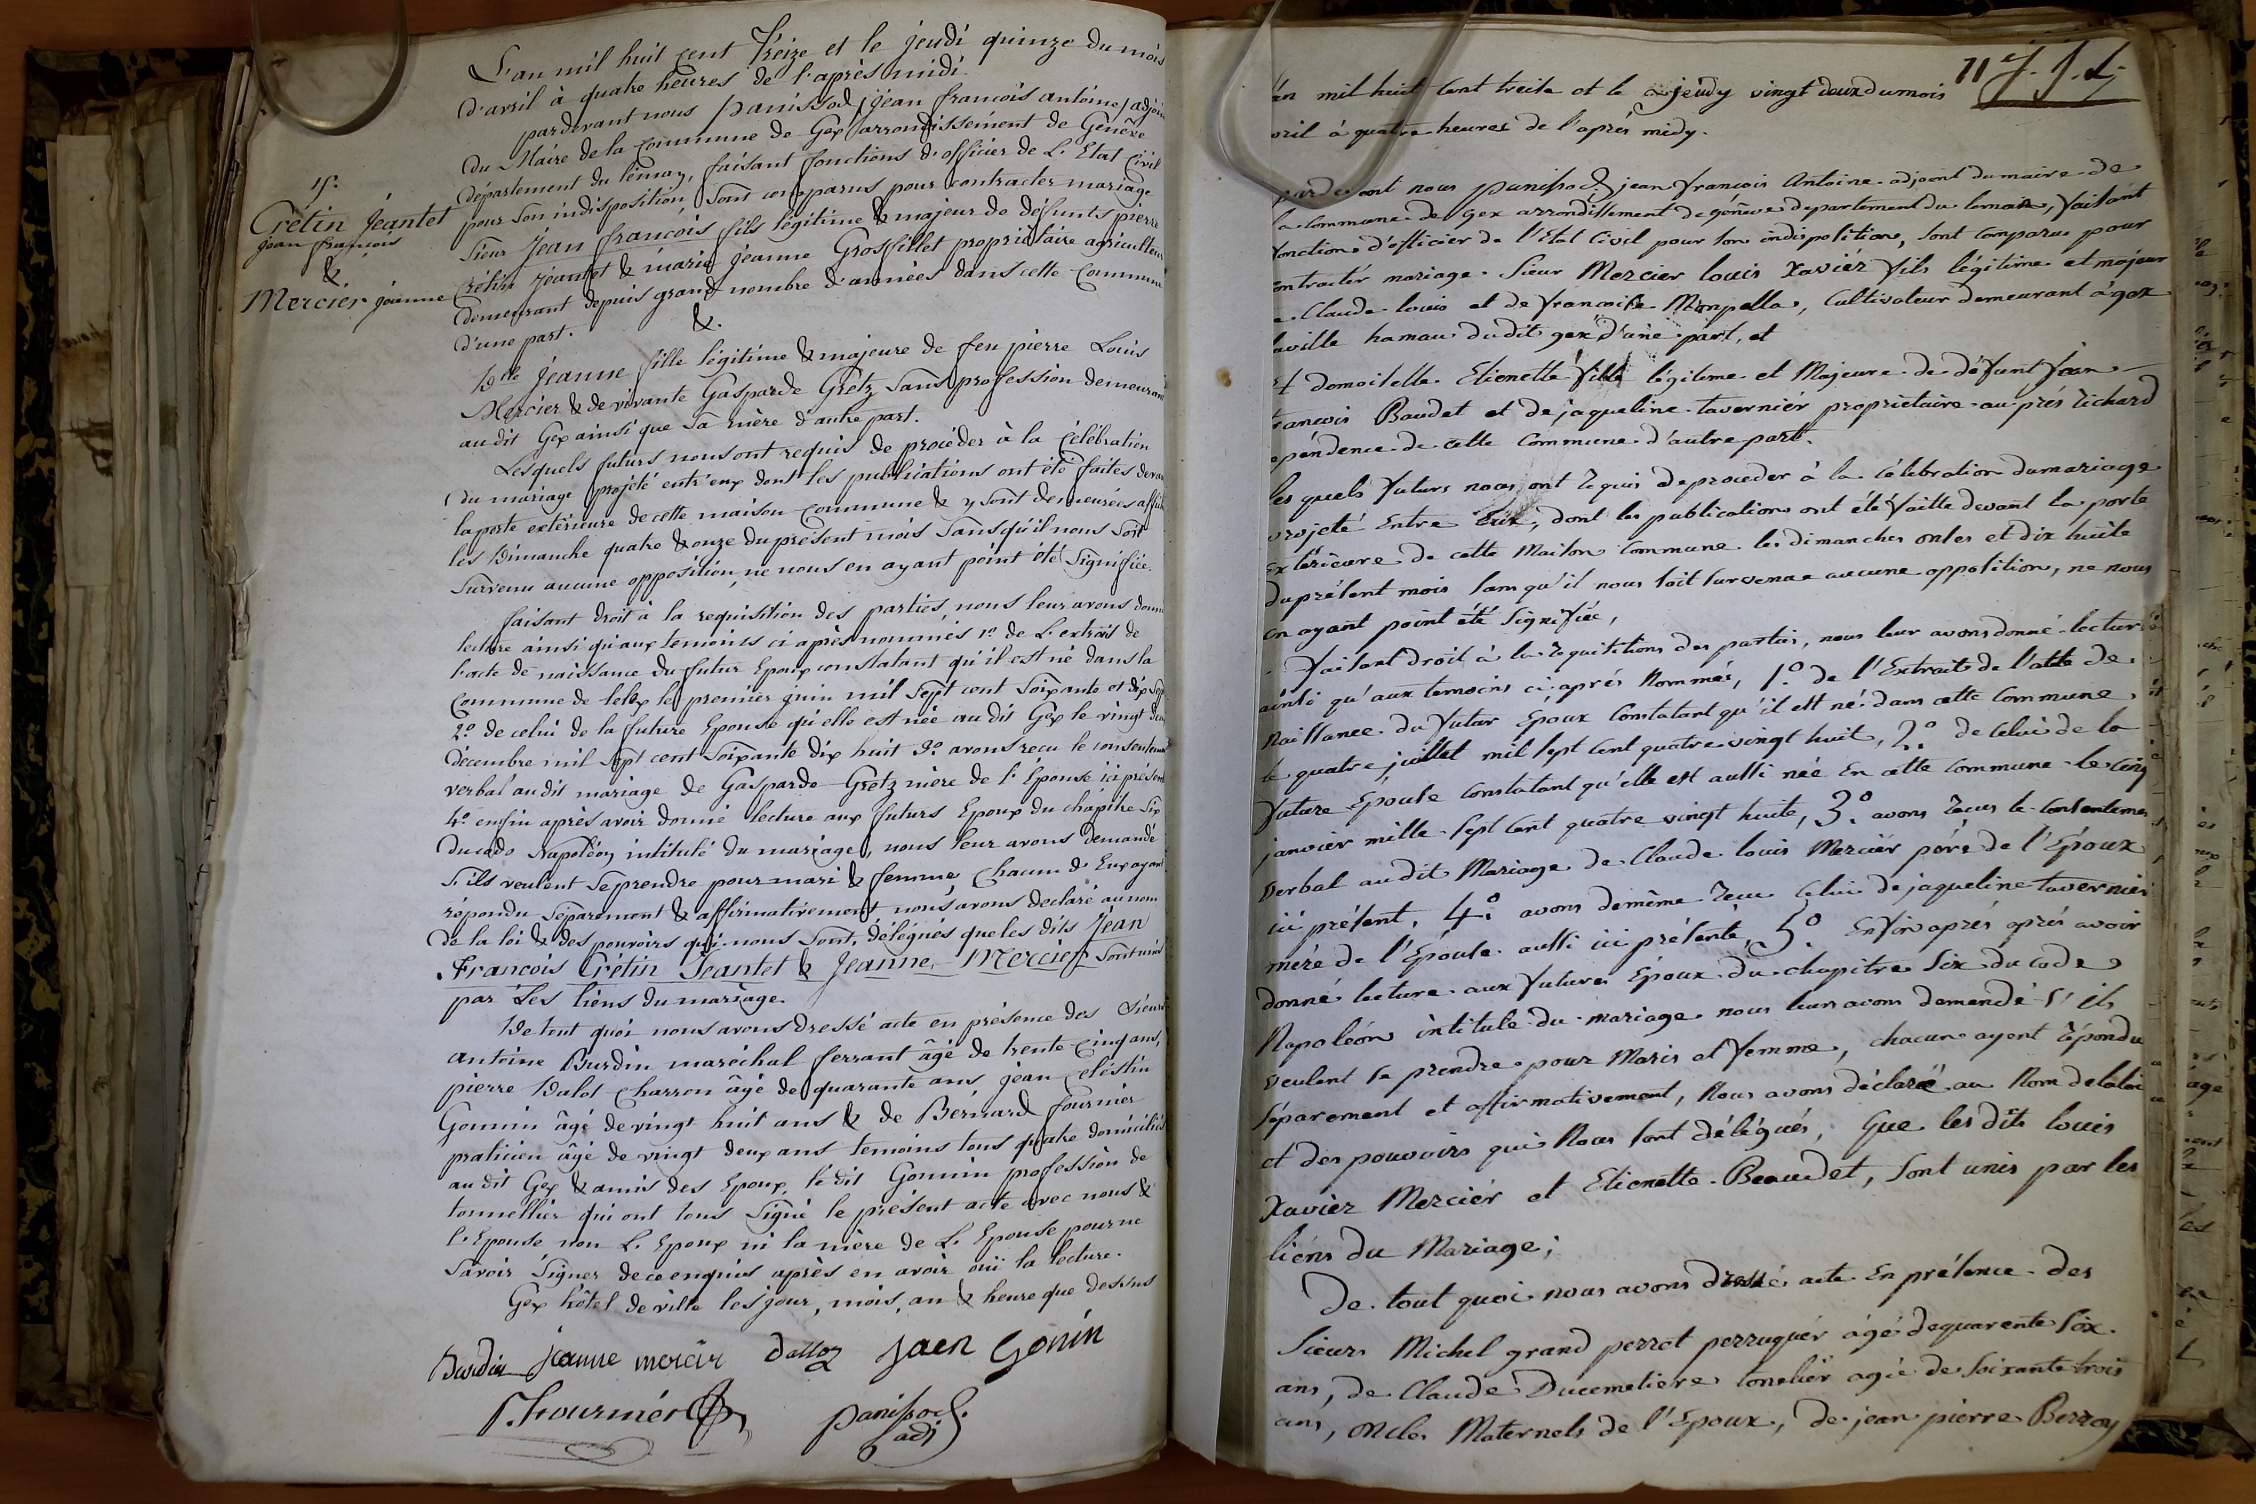 L'an mil huit cent Treize et le jeudi quinze du mois
d'avril à quatre heures de l'après midi.
pardevant nous panissod jean françois antoine adjoin
du Maire de la commune de Gex arrondissement de Genêve
département du léman, faisant fonctions d'officier de L'Etat Civil
pour son indisposition, sont comparus pour contracter mariage
Sieur Jean françois fils légitime & majeur de défunts pierre
crétin jeantet & marie jeanne Grosfillet propriétaire agriculteur
demeurant depuis grand nombre d'années dans cette commune
d'une part.
&.
Dlle Jeanne fille légitime & majeure de feu pierre Louis
Mercier & de vivante Gasparde Grétz sans profession demeurant
au dit Gex ainsi que sa mère d'autre part.
Lesquels futurs nous ont requis de procéder à la Célébration
du mariage projeté entr'eux dont les publications ont été faites devan
la porte extérieure de cette maison commune & y sont demeurées affich
les Dimanche quatre & onze du présent mois sans qu'il nous soit
survenu aucune opposition, ne nous en ayant point été signifiée.
faisant droit à la requisition des parties, nous leur avons donné
lecture ainsi qu'aux temoins ci après nommés 1º de L'extrait de
l'acte de naissance du futur Epoux constatant qu'il est né dans la
commune de lelex le premier juin mil sept cent soixante et dix sept
2º de celui de la future Epouse qu'elle est née au dit Gex le vingt deux
décembre mil sept cent soixante dix huit 3º avons reçu le consentement
verbal au dit mariage de Gasparde Grétz mère de l'Epouse ici présente
4º enfin après avoir donné lecture aux futurs Epoux du chapitre six
du code Napoléon intitulé du mariage, nous leur avons demandé
s'ils veulent se prendre pour mari & femme, chacun d'Eux ayant
répondu séparément & affirmativement nous avons declaré au nom
de la loi & des pouvoirs qui nous sont délégués que les dits Jean
François Crétin Jeantet & Jeanne Mercier sont unis
par les liens du mariage.
De tout quoi nous avons dressé acte en présence des Sieurs
Antoine Burdin maréchal ferrant âgé de trente cinq ans,
pierre Dalot charron âgé de quarante ans jean Celéstin
Gonnin âgé de vingt huit ans & de Bernard fournier
praticien âgé de vingt deux ans temoins tous quatre domiciliés
au dit Gex & amis des Epoux, le dit Gonnin profession de
tonnellier qui ont tous signé le présent acte avec nous &
l'Epouse, non L'Epoux ni la mère de L'Epouse pour ne
savoir signer de ce enquis après en avoir ouï la lecture.
Gex hôtel de ville les jour, mois, an & heure que dessus
Burdin jeanne mercir dalloz jaen Gonin
B. fournier panissod
adj
Crétin Jeantet
jean françois
&
Mercier jeanne
11
an mil huit cent treize et le jeudy vingt deux du mois
vril à quatre heures de l'aprés midy.
pardevant nous panissod jean françois Antoine adjoint du maire de
la commune de gex arrondissement de génêve departement du leman, faisant
fonctions d'officier de l'Etat Civil pour son indisposition, sont comparus pour
ontracter mariage. Sieur Mercier louis Xaviér fils légitime et majeur
e Claude louis et de françoise Monpella, Cultivateur demeurant à gex
laville hamau dudit gex d'une part, et
Et demoiselle Etienette fille légitime et Majeure de défunt Jean
françois Baudet et de jaqueline taverniér propriétaire au prés richard
épéndence de cette commune d'autre part.
les quels futurs nous ont requis de proceder à la célébration du mariage
projeté Entre Eux, dont les publications ont été faitte devant la porte
Extérieure de cette Maison Commune les dimanches onses et dix huite
du présent mois sans qu'il nous soit survenue aucune opposition, ne nous
en ayant point été signifiée,
faisant droit à la requisitions des parties, nous leur avons donné lecture
ainsi qu'aux temoins ci-aprés Nommés, 1º de l'Extrait de l'acte de
Naissance du futur Epoux Constatant qu'il est né dans cette Commune
le quatre juillet mil sept cent quatre vingt huit, 2º de celui de la
future Epouse Constatant qu'elle est aussi née En cette commune le cinq
janvier mille sept cent quatre vingt huite, 3º avons reçus le Consentemen
verbal audit Mariage de Claude louis Merciér pére de l'Epoux
ici présent, 4º avons demême reçu celui de jaqueline tavernier
mére de l'Epouse aussi ici présente, 5º Enfin aprés aprés avoir
donné lecture aux futurs Epoux du chapitre Six du code
Napoléon intitulé du mariage nous leurs avons demandé s'ils
veulent se prendre pour Maris et femme, chacun ayent répondu
séparement et affirmativement, Nous avons déclaré au Nom de la loi
et des pouvoirs qui Nous sont délégués, Que les dits louis
Xaviér Merciér et Etienette Beaudet, sont unis par les
liéns du Mariage;
De tout quoi nous avons dressé acte En présence des
Sieurs Michel grand perret perruquér âgé de quarente Six
ans, de Claude Ducemetiere toneliér agé de soixante trois
ans, oncles Maternels de l'Epoux, de jean pierre Berroy